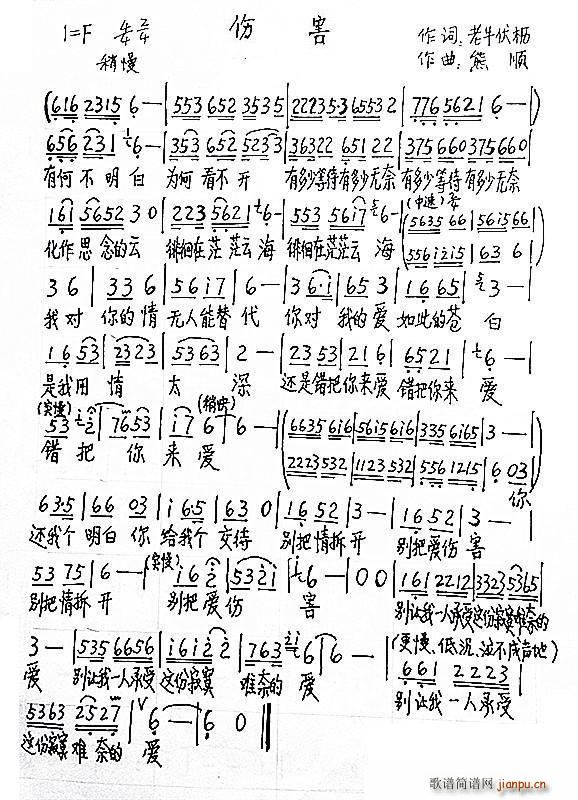 伤 害
1=F
作词:老牛伏枥
稍慢
作曲:熊 顺
(616 2315 6—|553 652 3535|22235·3 65532|776 5621 6—|)
656 231 6—|353 652 5233|36322 65122|375660 375660|
有何不明白 为何看不开 有多少等待有多少无奈 有多少等待有多少无奈
(中速)
161 5652 3 0|223 5621 6—|553 5617 6—|(5635 66|5615 66|
5561215|63 6)
化作思念的云 徘徊在茫茫云海 徘徊在茫茫云海
3 6|33 6|5617|6—|3 6·1|65 3|16 65|3—|
我对你的情 无人能替代 你对我的爱 如此的苍白
16 53|2323|5363|2—|23 53|21 6|6521|6—|
是我用情太深 还是错把你来爱 错把你来爱
(突慢) (稍快)
53 2|7653|17 6|6—|(6635 616|5615 616|335 6165|3—|
2223532|1123532|556 1215|6 03|
错把你来爱 你
63·5|66 03|16·5|63 0|1652|3—|1652|3—|
还我个明白 你给我个交待 别把情拆开 别把爱伤害
(突慢)
53 75|6—|162|5321|6—|0 0|161 2212|3323 5365|
别把情拆开 别把爱伤害 别让我一人承受这份寂寞难奈的
3—|535 6656|161622|763 6|6—|
(更慢、低沉、泣不成声地)
661 2223|
爱 别让我一人承受这份寂寞难奈的爱 别让我一人承受
5363 2527|6—|6 0‖
这份寂寞难奈的爱
歌谱简谱网 jianpu.cn